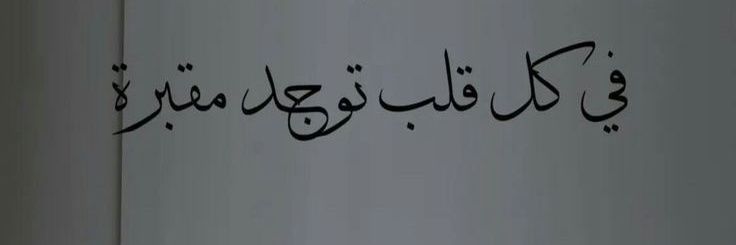 في كل قلب توجد مقبرة